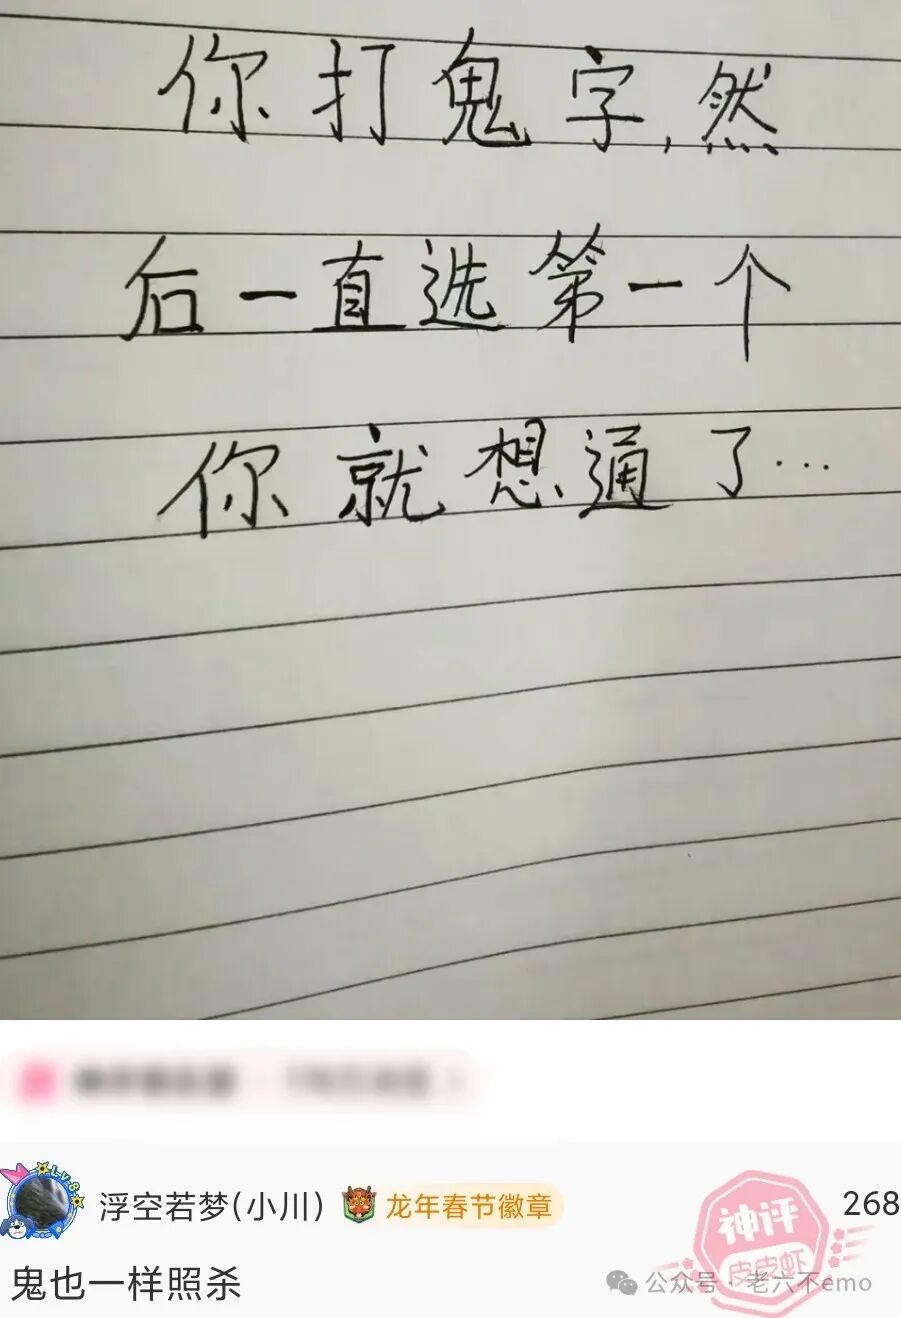 你打鬼字,然
后一直选第一个
你就想通了…
Lv.8
浮空若梦(小川) 龙年春节徽章 268
神评
皮皮虾
鬼也一样照杀
公众号·老六不emo